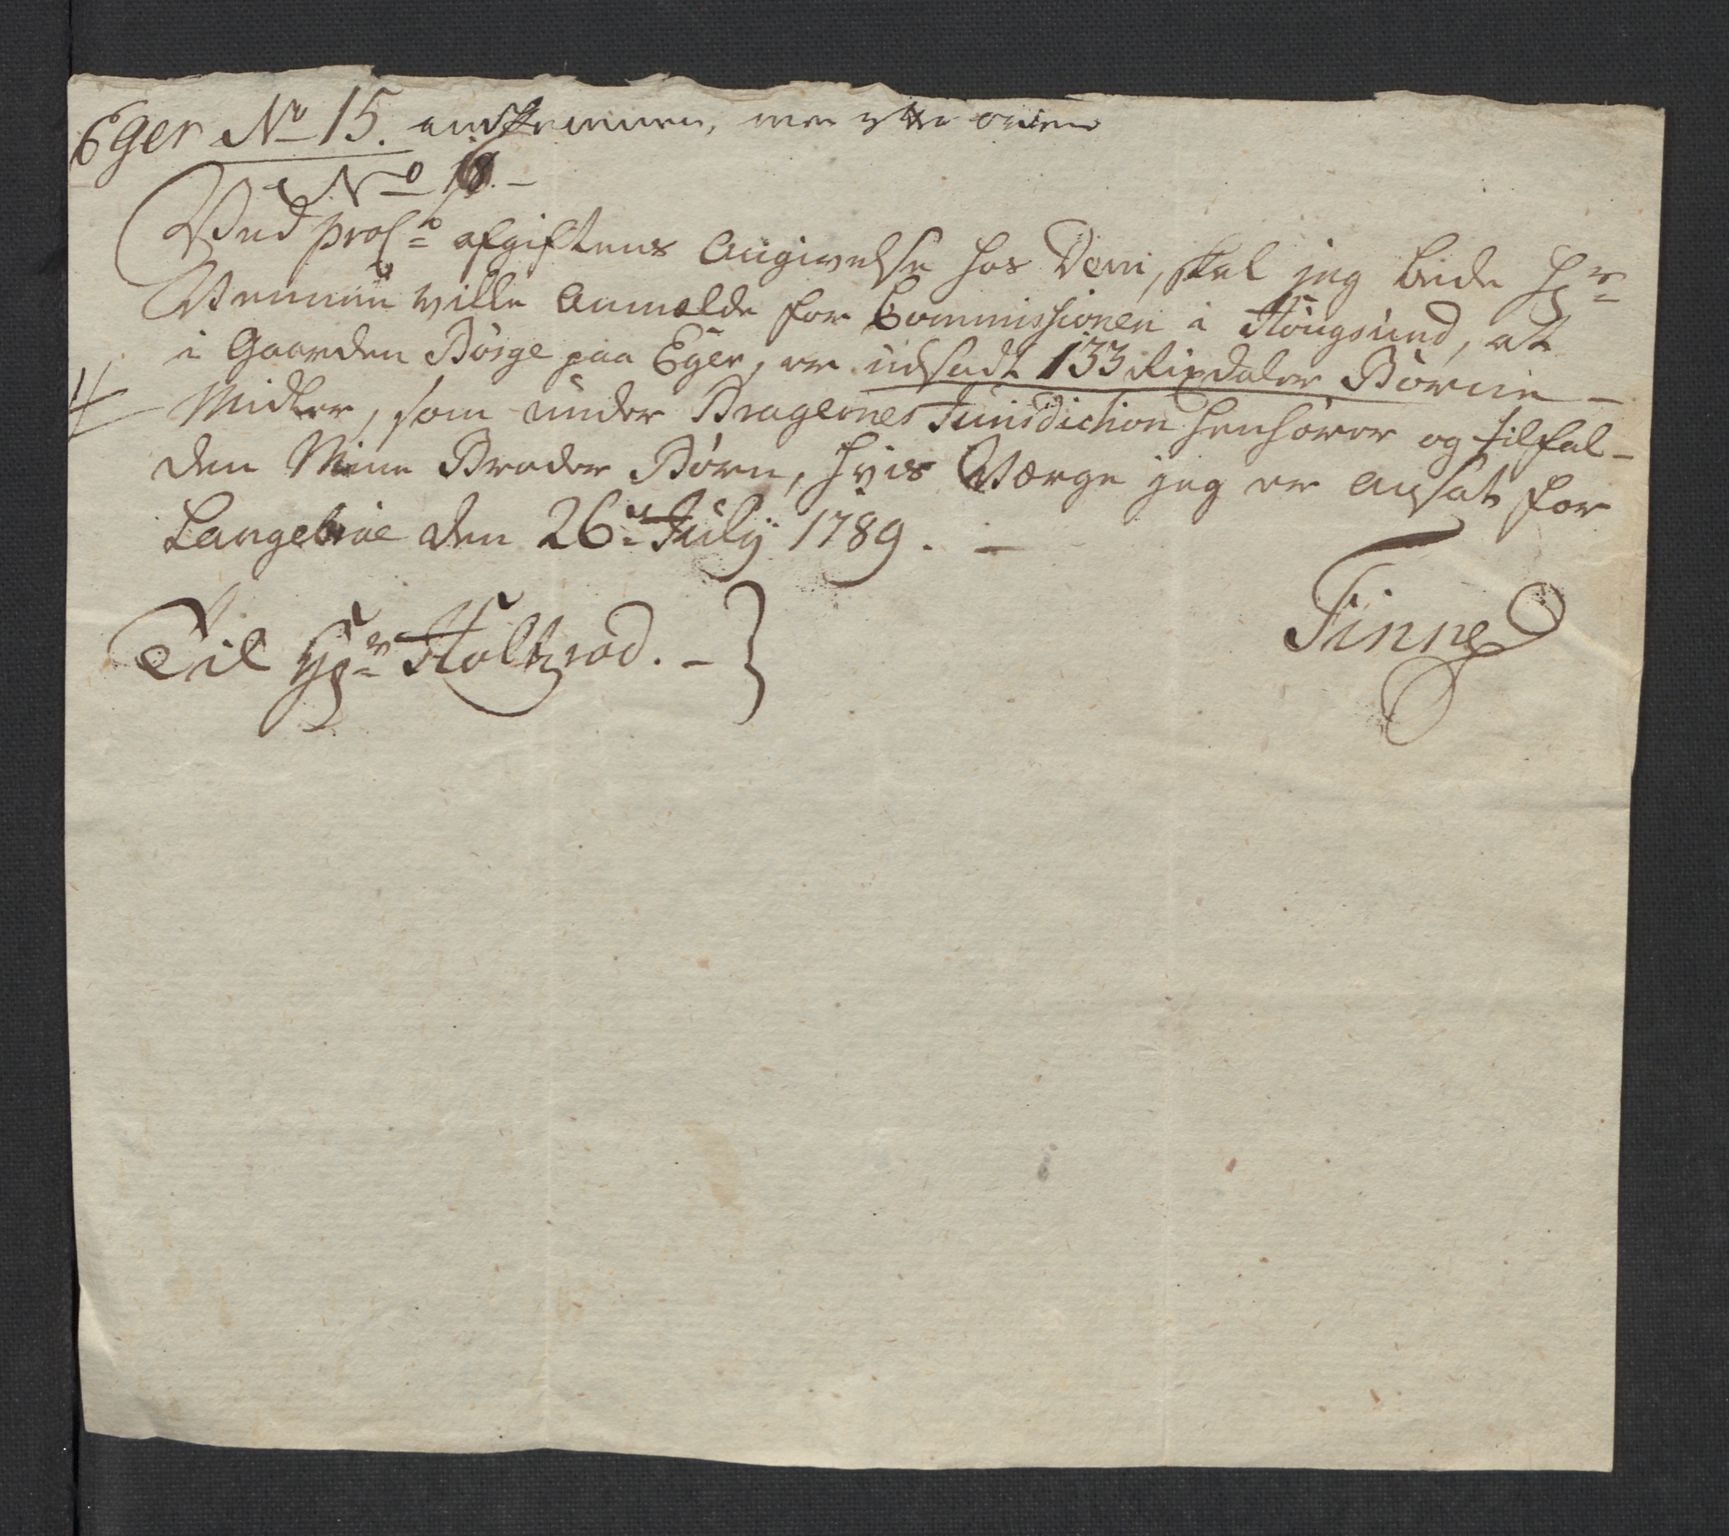 Eger No 15.
No 18. –
Ved proCto afgiftens Angivelse hos Dem, skal jeg bede Hr
Vennen ville Anmelde for Commissionen i Hougsund, at
i Gaarden Børge paa Eger, er udsadt 133 Rixdaler Børne-
Midler, som under Bragernes Jurisdiction henhører og tilfal-
den Mine Broder Børn, hvis Værge jeg er ansat for
Langebroe den 26de July 1789. –
Finne
Til Hr Holtzrod. –